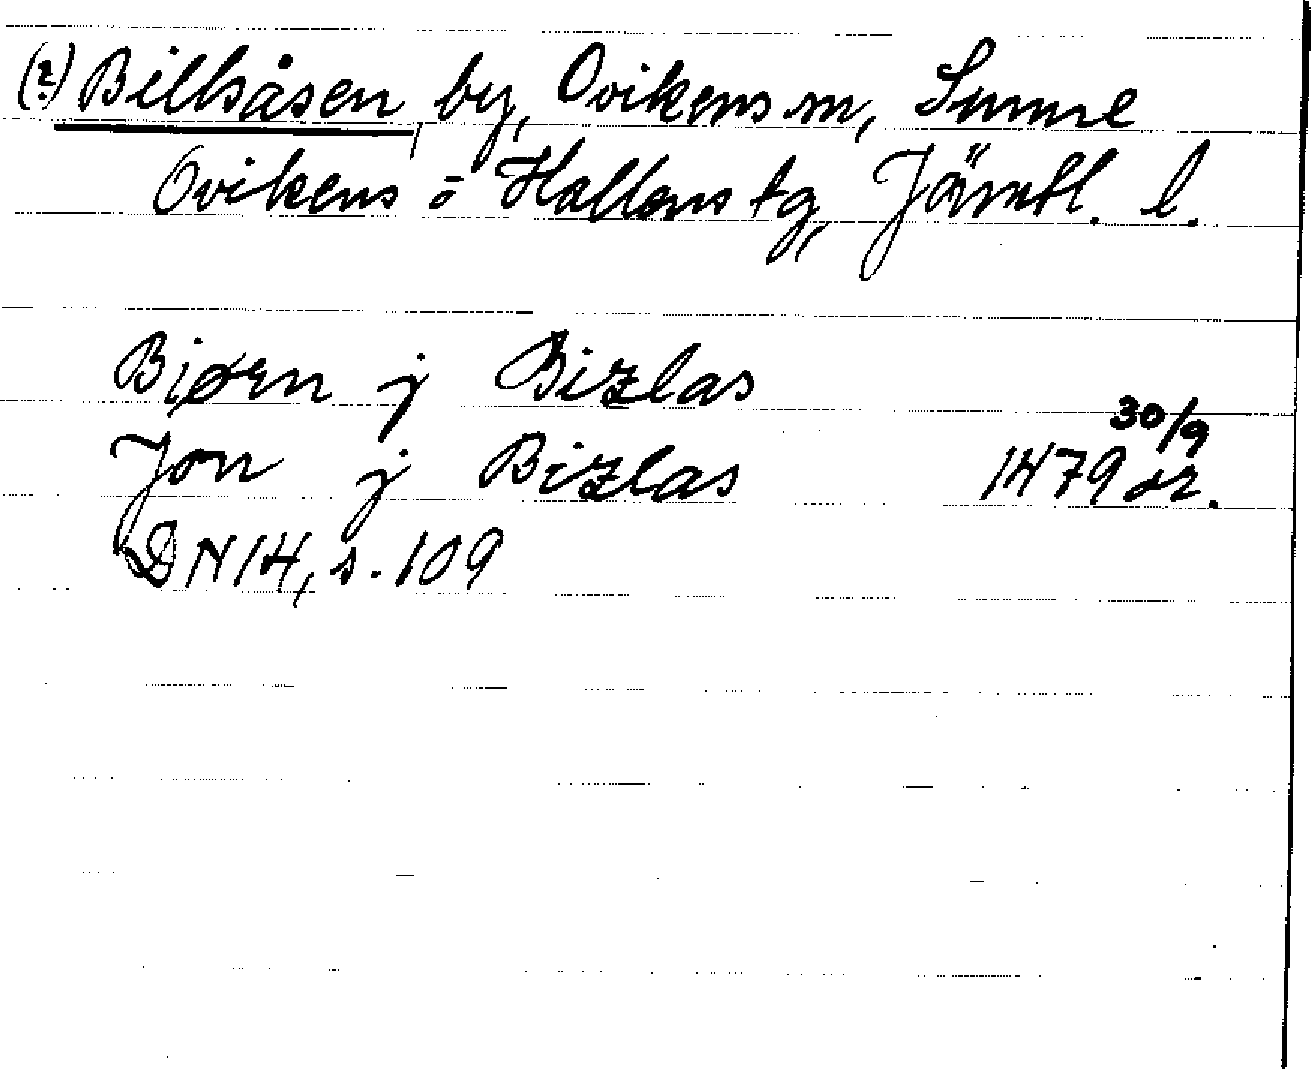 (?) Billsåsen, by, Ovikens sn, Sunne
Ovikens o Hallens tg, Jämtl. l.
Biørn j Bizlas
30/9
Jon j Bizlas 1479 or.
DN 14, s. 109